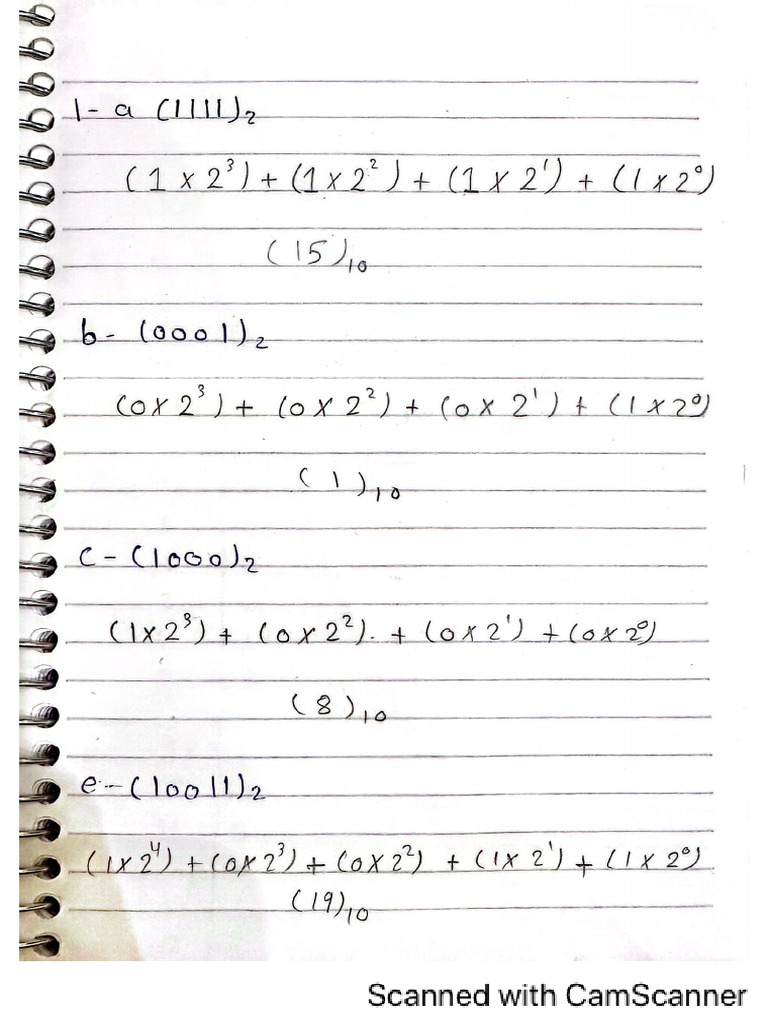 1- a (1111)₂
(1 × 2³) + (1 × 2²) + (1 × 2¹) + (1 × 2⁰)
(15)₁₀
b- (0001)₂
(0 × 2³) + (0 × 2²) + (0 × 2¹) + (1 × 2⁰)
(1)₁₀
c - (1000)₂
(1 × 2³) + (0 × 2²). + (0 × 2¹) + (0 × 2⁰)
(8)₁₀
e - (10011)₂
(1 × 2⁴) + (0 × 2³) + (0 × 2²) + (1 × 2¹) + (1 × 2⁰)
(19)₁₀
Scanned with CamScanner